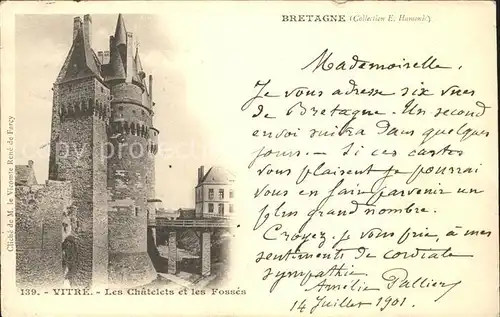 BRETAGNE (Collection E. Hamonic)
Mademoiselle.
Je vous adresse six vues
de Bretagne. Un second
envoi suivra dans quelques
jours. — Si ces cartes
vous plaisent je pourrai
vous en faire parvenir un
plus grand nombre.
Croyez, je vous prie, à mes
sentiments de cordiale
sympathie.
Amélie Pallier,
14 Juillet 1901.
Cliché de M. le Vicomte René de Farcy
139. - VITRÉ. - Les Châtelets et les Fossés